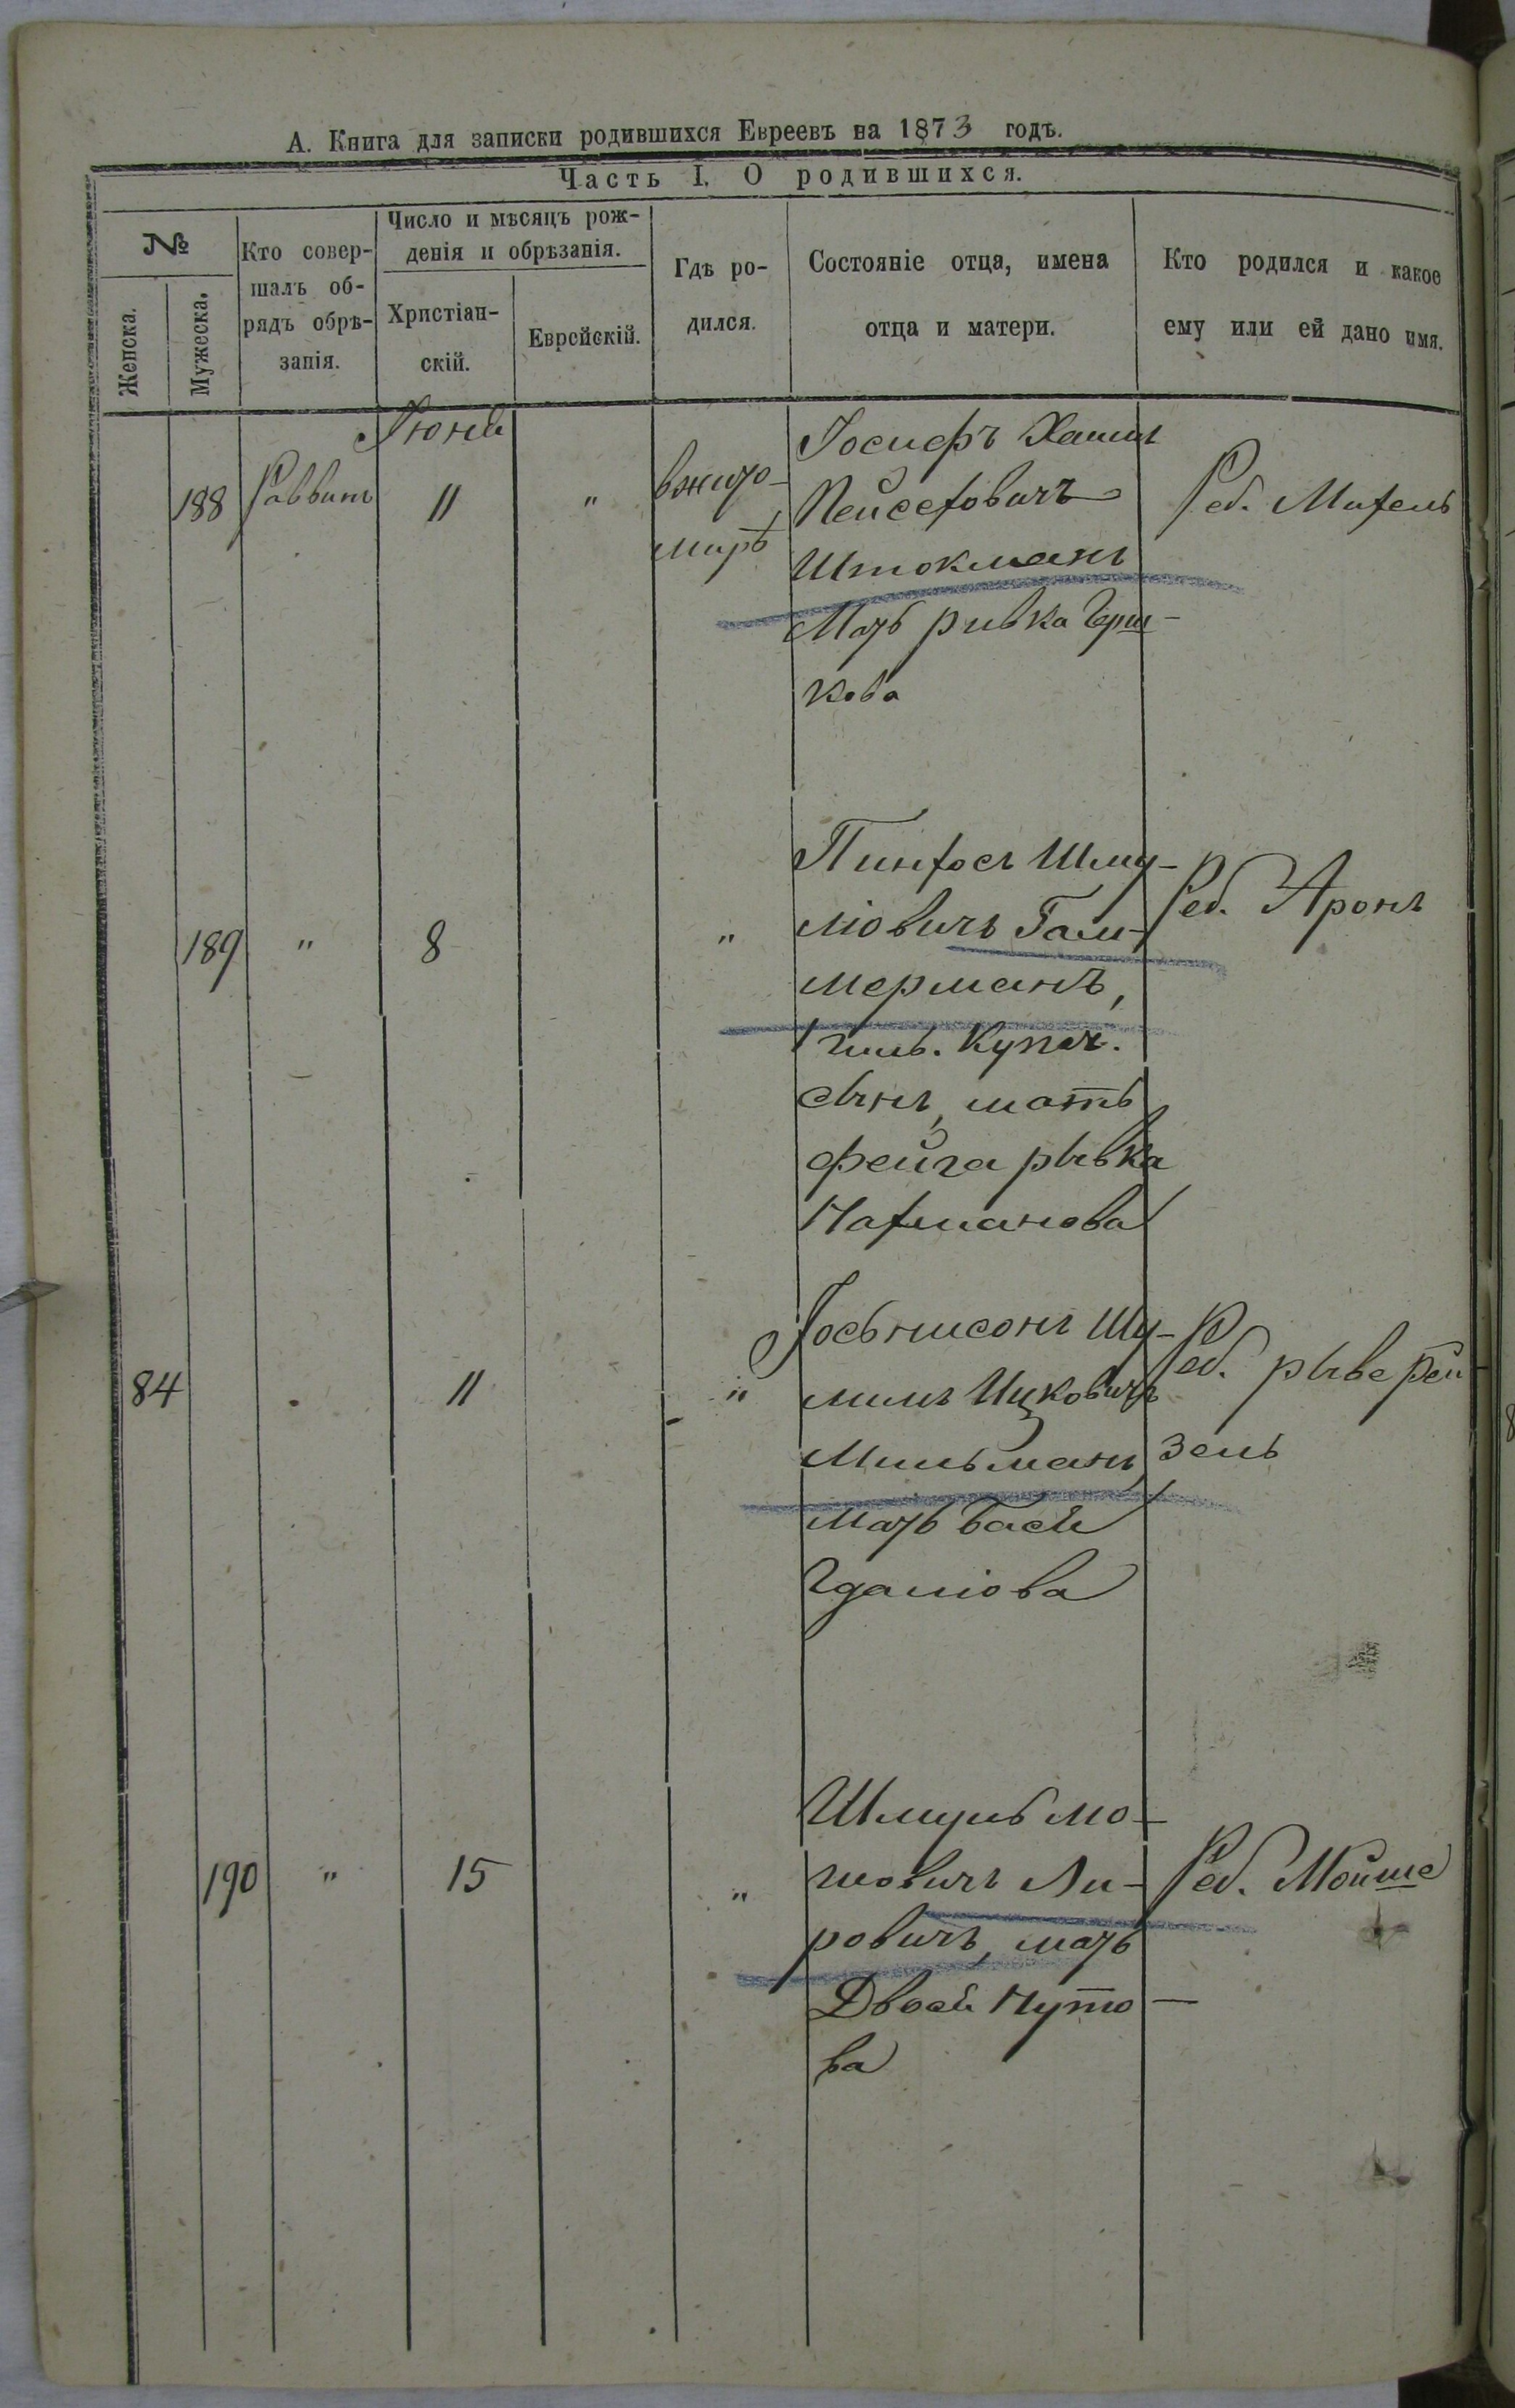 А. Книга для записки родившихся Евреевъ на 1873 годъ.
Часть I. О родившихся.
№
Женска.
Мужеска.
Кто совер-
шалъ об-
рядъ обрѣ-
занія.
Число и мѣсяцъ рож-
денія и обрѣзанія.
Христіан-
скій.
Еврейскій.
Гдѣ ро-
дился.
Состояніе отца, имена
отца и матери.
Кто родился и какое
ему или ей дано имя.
188
Раввинъ
Іюня
11
"
вжито-
мирѣ
Іосифъ Хаимъ
Пейсеховичъ
Штокманъ
Мать ривка Герш-
кова
Реб. Михель
189
"
8
"
Пинхосъ Шму-
ліовичъ Гам-
мерманъ,
1 гиль. Купеч.
сынъ, мать
фейга рывка
Нахманова
Реб. Аронъ
84
11
"
Іось нисонъ Шу-
лимъ Ицковичъ
Мильманъ,
Мать Бася
Гдаліова
Реб. рыве рей-
зель
190
"
15
"
Шмуль мо-
шовичъ Ли-
ровичъ, мать
Двося Нуто-
ва
Реб. Мойше